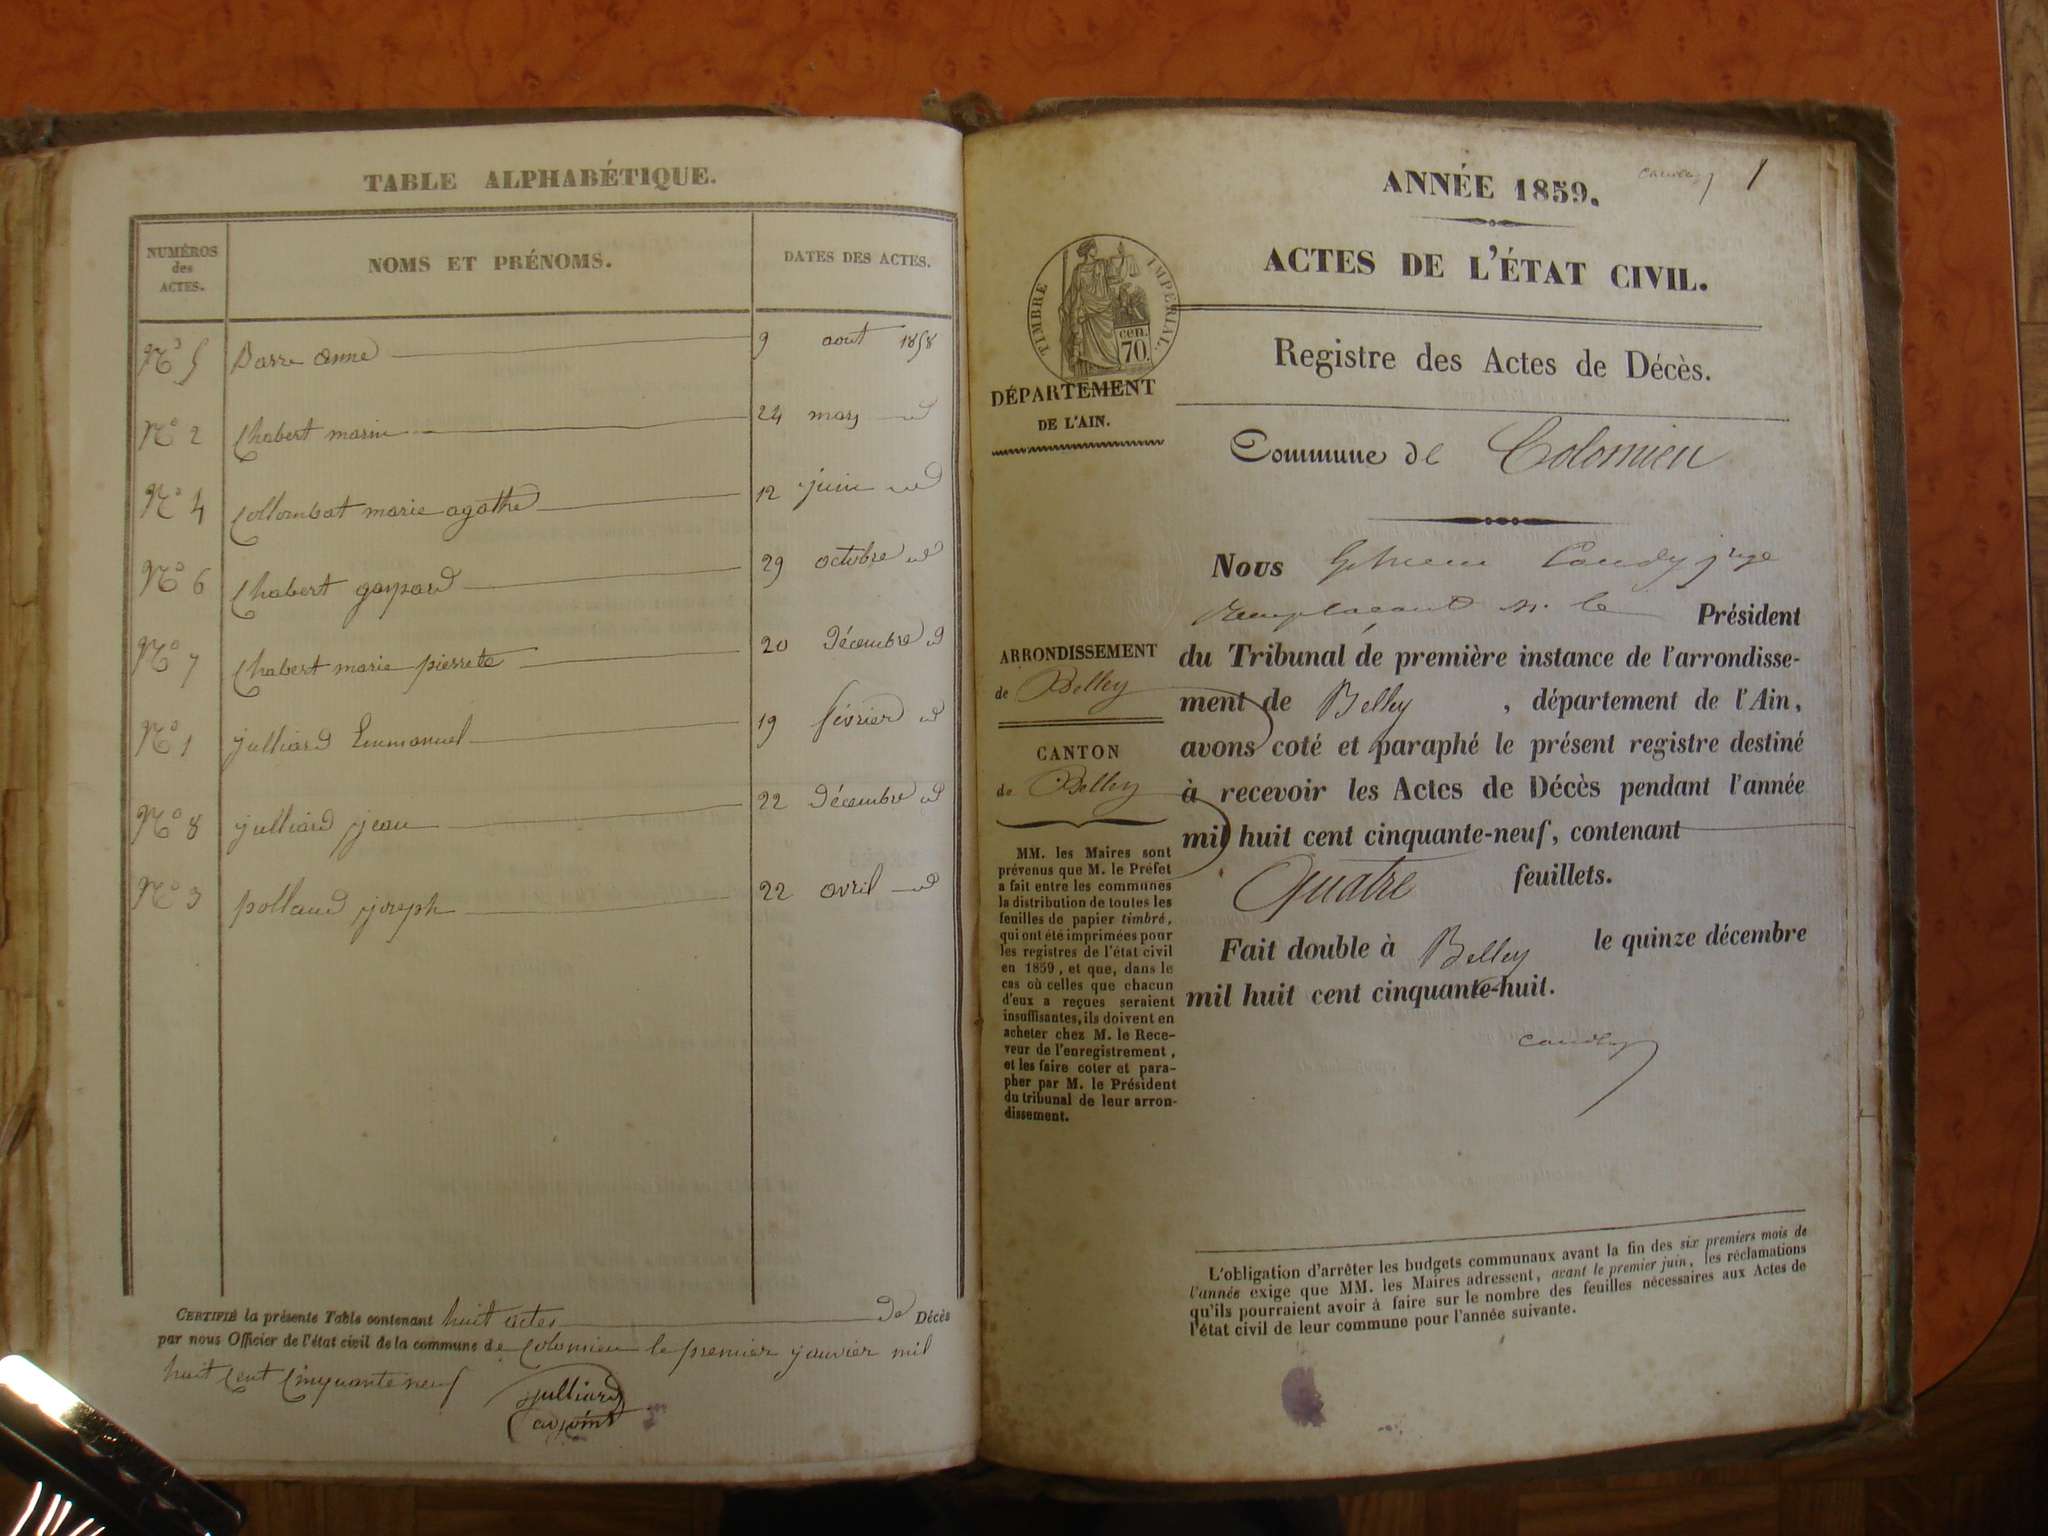 TABLE ALPHABÉTIQUE.
NUMÉROS des ACTES.
NOMS ET PRÉNOMS.
DATES DES ACTES.
N° 5 Darre anne 9 aout 1858
N° 2 Chabert marie 24 mars id
N° 4 Collombat marie agathe 12 juin id
N° 6 Chabert gaspard 29 octobre id
N° 7 Chabert marie pierrete 20 décembre d
N° 1 julliard Emmanuel 19 février id
N° 8 julliard jean 22 décembre id
N° 3 polland joseph 22 avril id
CERTIFIÉ la présente Table contenant huit actes de Décès
par nous Officier de l'état civil de la commune de Colomieu le premier janvier mil
huit Cent Cinquante neuf
julliard
adjoint
Caudy 1
ANNÉE 1859.
ACTES DE L'ÉTAT CIVIL.
TIMBRE IMPÉRIAL.
cen.
70.
DÉPARTEMENT
DE L'AIN.
Registre des Actes de Décès.
Commune de Colomieu
ARRONDISSEMENT
de Belley
CANTON
de Belley
MM. les Maires sont
prévenus que M. le Préfet
a fait entre les communes
la distribution de toutes les
feuilles de papier timbré,
qui ont été imprimées pour
les registres de l'état civil
en 1859, et que, dans le
cas où celles que chacun
d'eux a reçues seraient
insuffisantes, ils doivent en
acheter chez M. le Rece-
veur de l'enregistrement,
et les faire coter et para-
pher par M. le Président
du tribunal de leur arron-
dissement.
Nous Caudy juge
remplaçant M. le Président
du Tribunal de première instance de l'arrondisse-
ment de Belley, département de l'Ain,
avons coté et paraphé le présent registre destiné
à recevoir les Actes de Décès pendant l'année
mil huit cent cinquante-neuf, contenant
Quatre feuillets.
Fait double à Belley le quinze décembre
mil huit cent cinquante-huit.
Caudy
L'obligation d'arrêter les budgets communaux avant la fin des six premiers mois de
l'année exige que MM. les Maires adressent, avant le premier juin, les réclamations
qu'ils pourraient avoir à faire sur le nombre des feuilles nécessaires aux Actes de
l'état civil de leur commune pour l'année suivante.